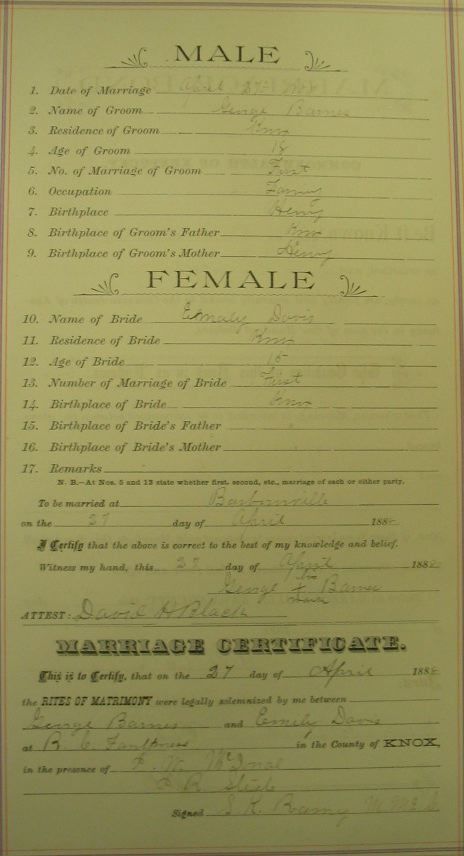 MALE
1. Date of Marriage April 27
2. Name of Groom George Barnes
3. Residence of Groom Knox
4. Age of Groom 18
5. No. of Marriage of Groom First
6. Occupation
7. Birthplace Henry
8. Birthplace of Groom's Father Knox
9. Birthplace of Groom's Mother Henry
FEMALE
10. Name of Bride Emaly Davis
11. Residence of Bride Knox
12. Age of Bride
13. Number of Marriage of Bride First
14. Birthplace of Bride Knox
15. Birthplace of Bride's Father
16. Birthplace of Bride's Mother
17. Remarks
N. B.—At Nos. 5 and 13 state whether first, second, etc., marriage of each or either party.
To be married at Barbourville
on the 27 day of April 188
I Certify that the above is correct to the best of my knowledge and belief.
Witness my hand, this 27 day of April 188
his
George X Barnes
mark
ATTEST: David H Black
MARRIAGE CERTIFICATE.
This is to Certify, that on the 27 day of April 188
the RITES OF MATRIMONY were legally solemnized by me between
George Barnes and Emily Davis
at B. C. in the County of KNOX,
in the presence of
Signed S. K. Ramy